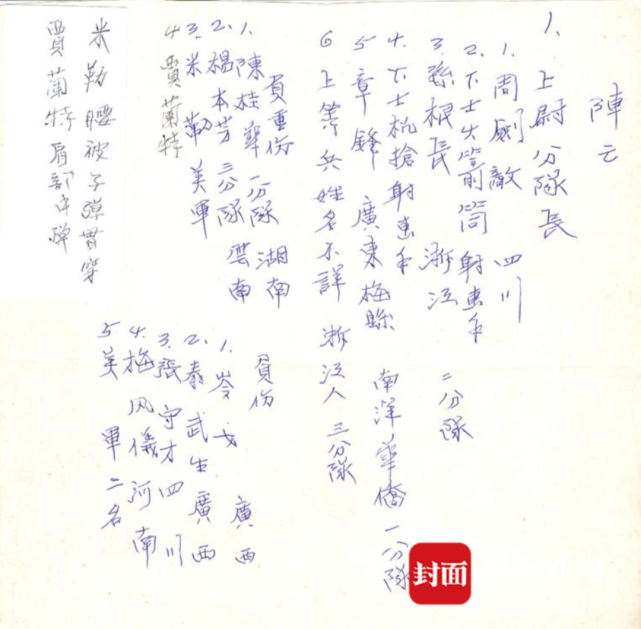 陣亡
1. 上尉分隊長
1. 周劍敵 四川
2. 下士火箭筒射击手
3. 孫根長 浙江 二分隊
4. 下士机搶射击手
5 章鋒 廣東梅縣 南洋華僑 一分隊
6 上等兵姓名不詳 浙江人 三分隊
負重伤
1. 陳桂華 一分隊 湖南
2. 楊本芳 三分隊 雲南
3. 米勒 美軍
4 賈蘭特
負伤
1. 岑戈 廣西
2. 秦武生 廣西
3. 張守才 四川
4. 梅风儀 河南
5 美軍二名
米勒腰被子弹貫穿
賈蘭特肩部中弹
封面